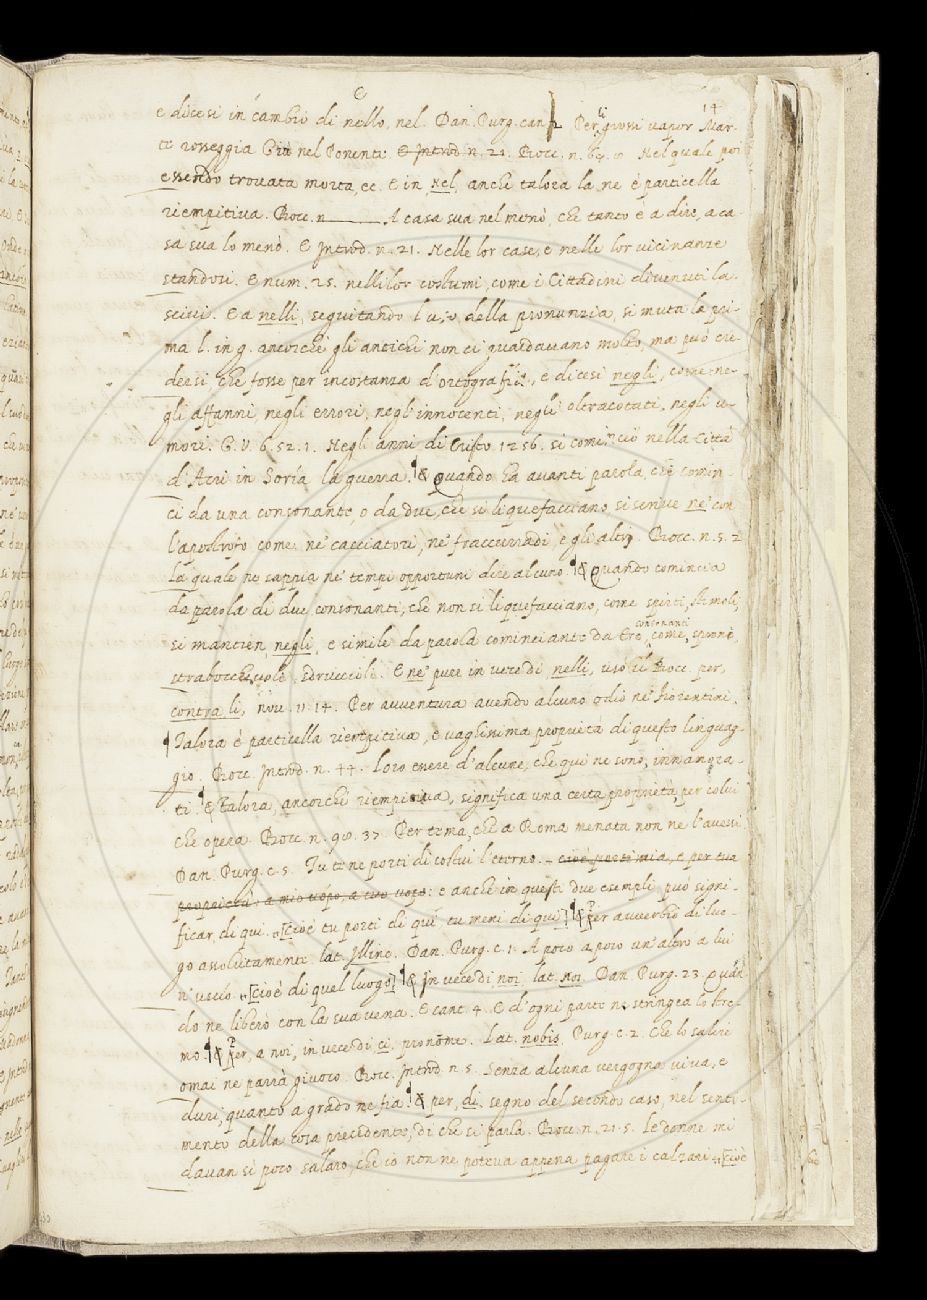 14
e dicesi in cambio di nello, nel. Dan. Purg. can. 2. Per li grossi vapor Mar-
te rosseggia Giù nel Ponente. E Introd. n. 21. Bocc. n. 69. Nel quale poi
essendo trovata morta, ec. E in, Nel, anche talora la ne è particella
riempitiva. Bocc. n. A casa sua nel menò, che tanto è a dire, a ca-
sa sua lo menò. E Introd. n. 21. Nelle lor case, e nelle lor vicinanze
standosi. E num. 25. nelli lor costumi, come i Cittadini divenuti la-
scivi. E a nelli, seguitando l'uso della pronunzia, si muta la pri-
ma l. in g. ancorchè gli antichi non ci guardavano molto, ma può cre-
dersi che fosse per incostanza d'ortografia, e dicesi negli, come ne-
gli affanni, negli errori, negl'innocenti, negli oltracotati, negli u-
mori. G. V. 6. 52. 1. Negli anni di Cristo 1256. si cominciò nella Città
d'Acri in Soría la guerra. ¶ & Quando ha avanti parola, che comin-
ci da una consonante, o da due, che si liquefacciano, si scrive ne' con
l'apostrofo come ne' cacciatori, ne' fraccurradi, e gli altri. Bocc. n. 5. 2
La quale ne sappia ne' tempi opportuni dire alcuno ¶ & Quando comincia
da parola di due consonanti, che non si liquefacciano, come spirti,
si mantien negli, e simile da parola cominciante da tre consonanti, come, sprone,
strabocchevole, sdruccioli. E ne' pure in vece di nelli, usò il Bocc. per,
contra li, nov. v. 14. Per avventura avendo alcuno odio ne' Fiorentini.
¶ Talora è particella riempitiva, e vaghissima propietà di questo linguag-
gio. Bocc. Introd. n. 44. Loro esere d'alcune, che qui ne sono, innamora-
ti ¶ & Talora, ancorchè riempitiva, significa una certa proprietà per colui
che opera. Bocc. n. 98. 37. Per tema, che a Roma menata non ne l'avessi
Dan. Purg. c. 5. Tu te ne porti di costui l'eterno. cioè porti mia, e per tua
propietà: a mio uópo, a tuo uopo: e anche in questi due esempli può signi-
ficar, di qui. [cioè tu porti di quì, tu meni di qui] ¶ & Per avverbio di luo-
go assolutamente. lat. Illinc. Dan. Purg. c. 1. A poco a poco un altro a lui
n'uscío. [cioè di quel luogo] ¶ & In vece di noi, lat. nos. Dan. Purg. 23. Quan-
do ne liberò con la sua vena. E cant. 4. E d'ogni parte ne stringea lo stre-
mo. ¶ & Per, a noi, in vece di ci. pronome. Lat. nobis. Purg. c. 2. Che lo salire
omai ne parrà giuoco. Bocc. Introd. n. 5. Senza alcuna vergogna viva, e
duri, quanto a grado ne fia. ¶ & per, di, segno del secondo caso, nel senti-
mento della cosa precedente, di che si parla. Bocc. n. 21. 5. Le donne mi
davan sì poco salaro, che io non ne poteva appena pagare i calzari [cioè